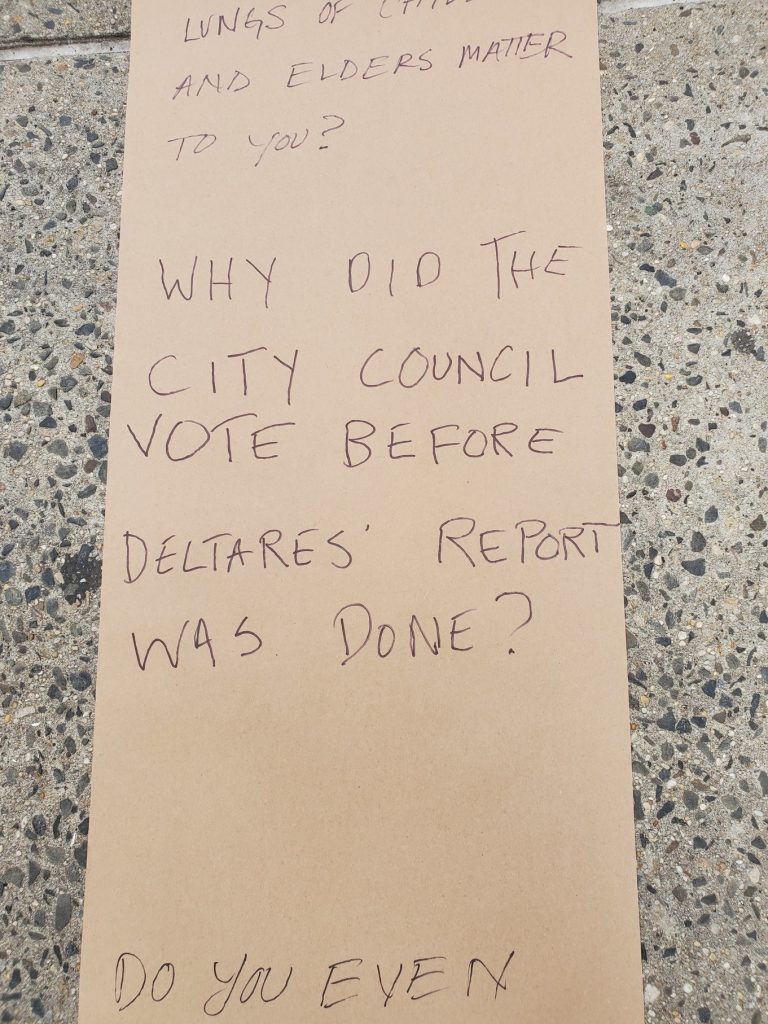 LUNGS OF
AND ELDERS MATTER
TO YOU?
WHY DID THE
CITY COUNCIL
VOTE BEFORE
DELTARES' REPORT
WAS DONE?
DO YOU EVEN